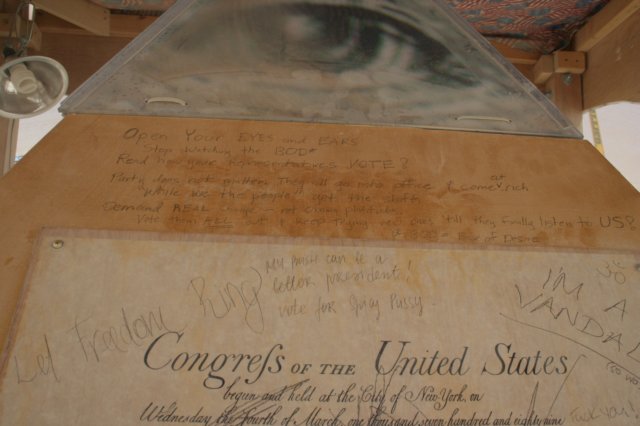 Open Your EYES and EARS
Stop watching the BOOB
Read how your VOTE!
Party does not matter. They all go into office & come out rich
while we the people get the shaft
Demand REAL not
Vote them ALL out & keep trying new ones till they finally listen to US!
of Desire
Let Freedom Ring
My can be a
better president!
vote for Pussy
I'M A
VANDAL
Congreſs OF THE United States
begun and held at the City of New-York, on
Wedneſday the fourth of March, one thouſand seven hundred and eighty nine